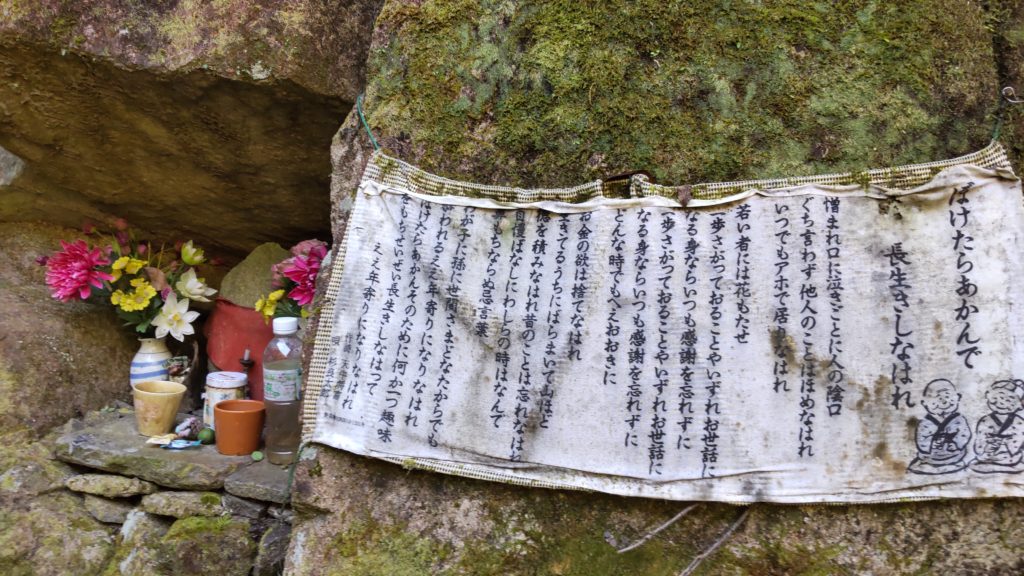 ぼけたらあかんで
長生きしなはれ
憎まれ口に泣きごとに人の陰口
ぐち言わず他人のことはほめなはれ
いつでもアホで居りなはれ
若い者には花もたせ
一歩さがっておることやいずれお世話に
なる身ならいつも感謝を忘れずに
一歩さがっておることやいずれお世話に
なる身ならいつも感謝を忘れずに
どんな時でもへえおおきに
お金の欲は捨てなはれ
生きてるうちにばらまいて山ほど
徳を積みなはれ昔のことは忘れなはれ
自慢ばなしにわしらの時はなんて
夢にもならぬ忌言葉
わが子に孫に世間さまどなたからでも
いわれるええ年寄りになりなはれ
ぼけたらあかんそのために何か一つ趣味
をもちせいぜい長生きしなはって
ええ年寄りになりなはれ